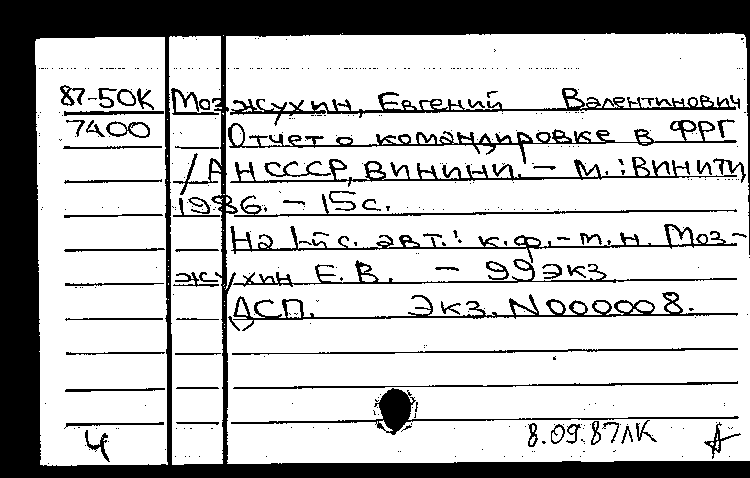 87-50К Мозжухин, Евгений Валентинович
7400 Отчет о командировке в ФРГ
/АН СССР, ВИНИНИ. - М.: ВИНИТИ,
1986. - 15 с.
На 1-й с. авт.: к.ф.-м.н. Моз-
жухин Е.В. - 99 экз.
ДСП. Экз. N000008.
Ч 8.09.87 ЛК